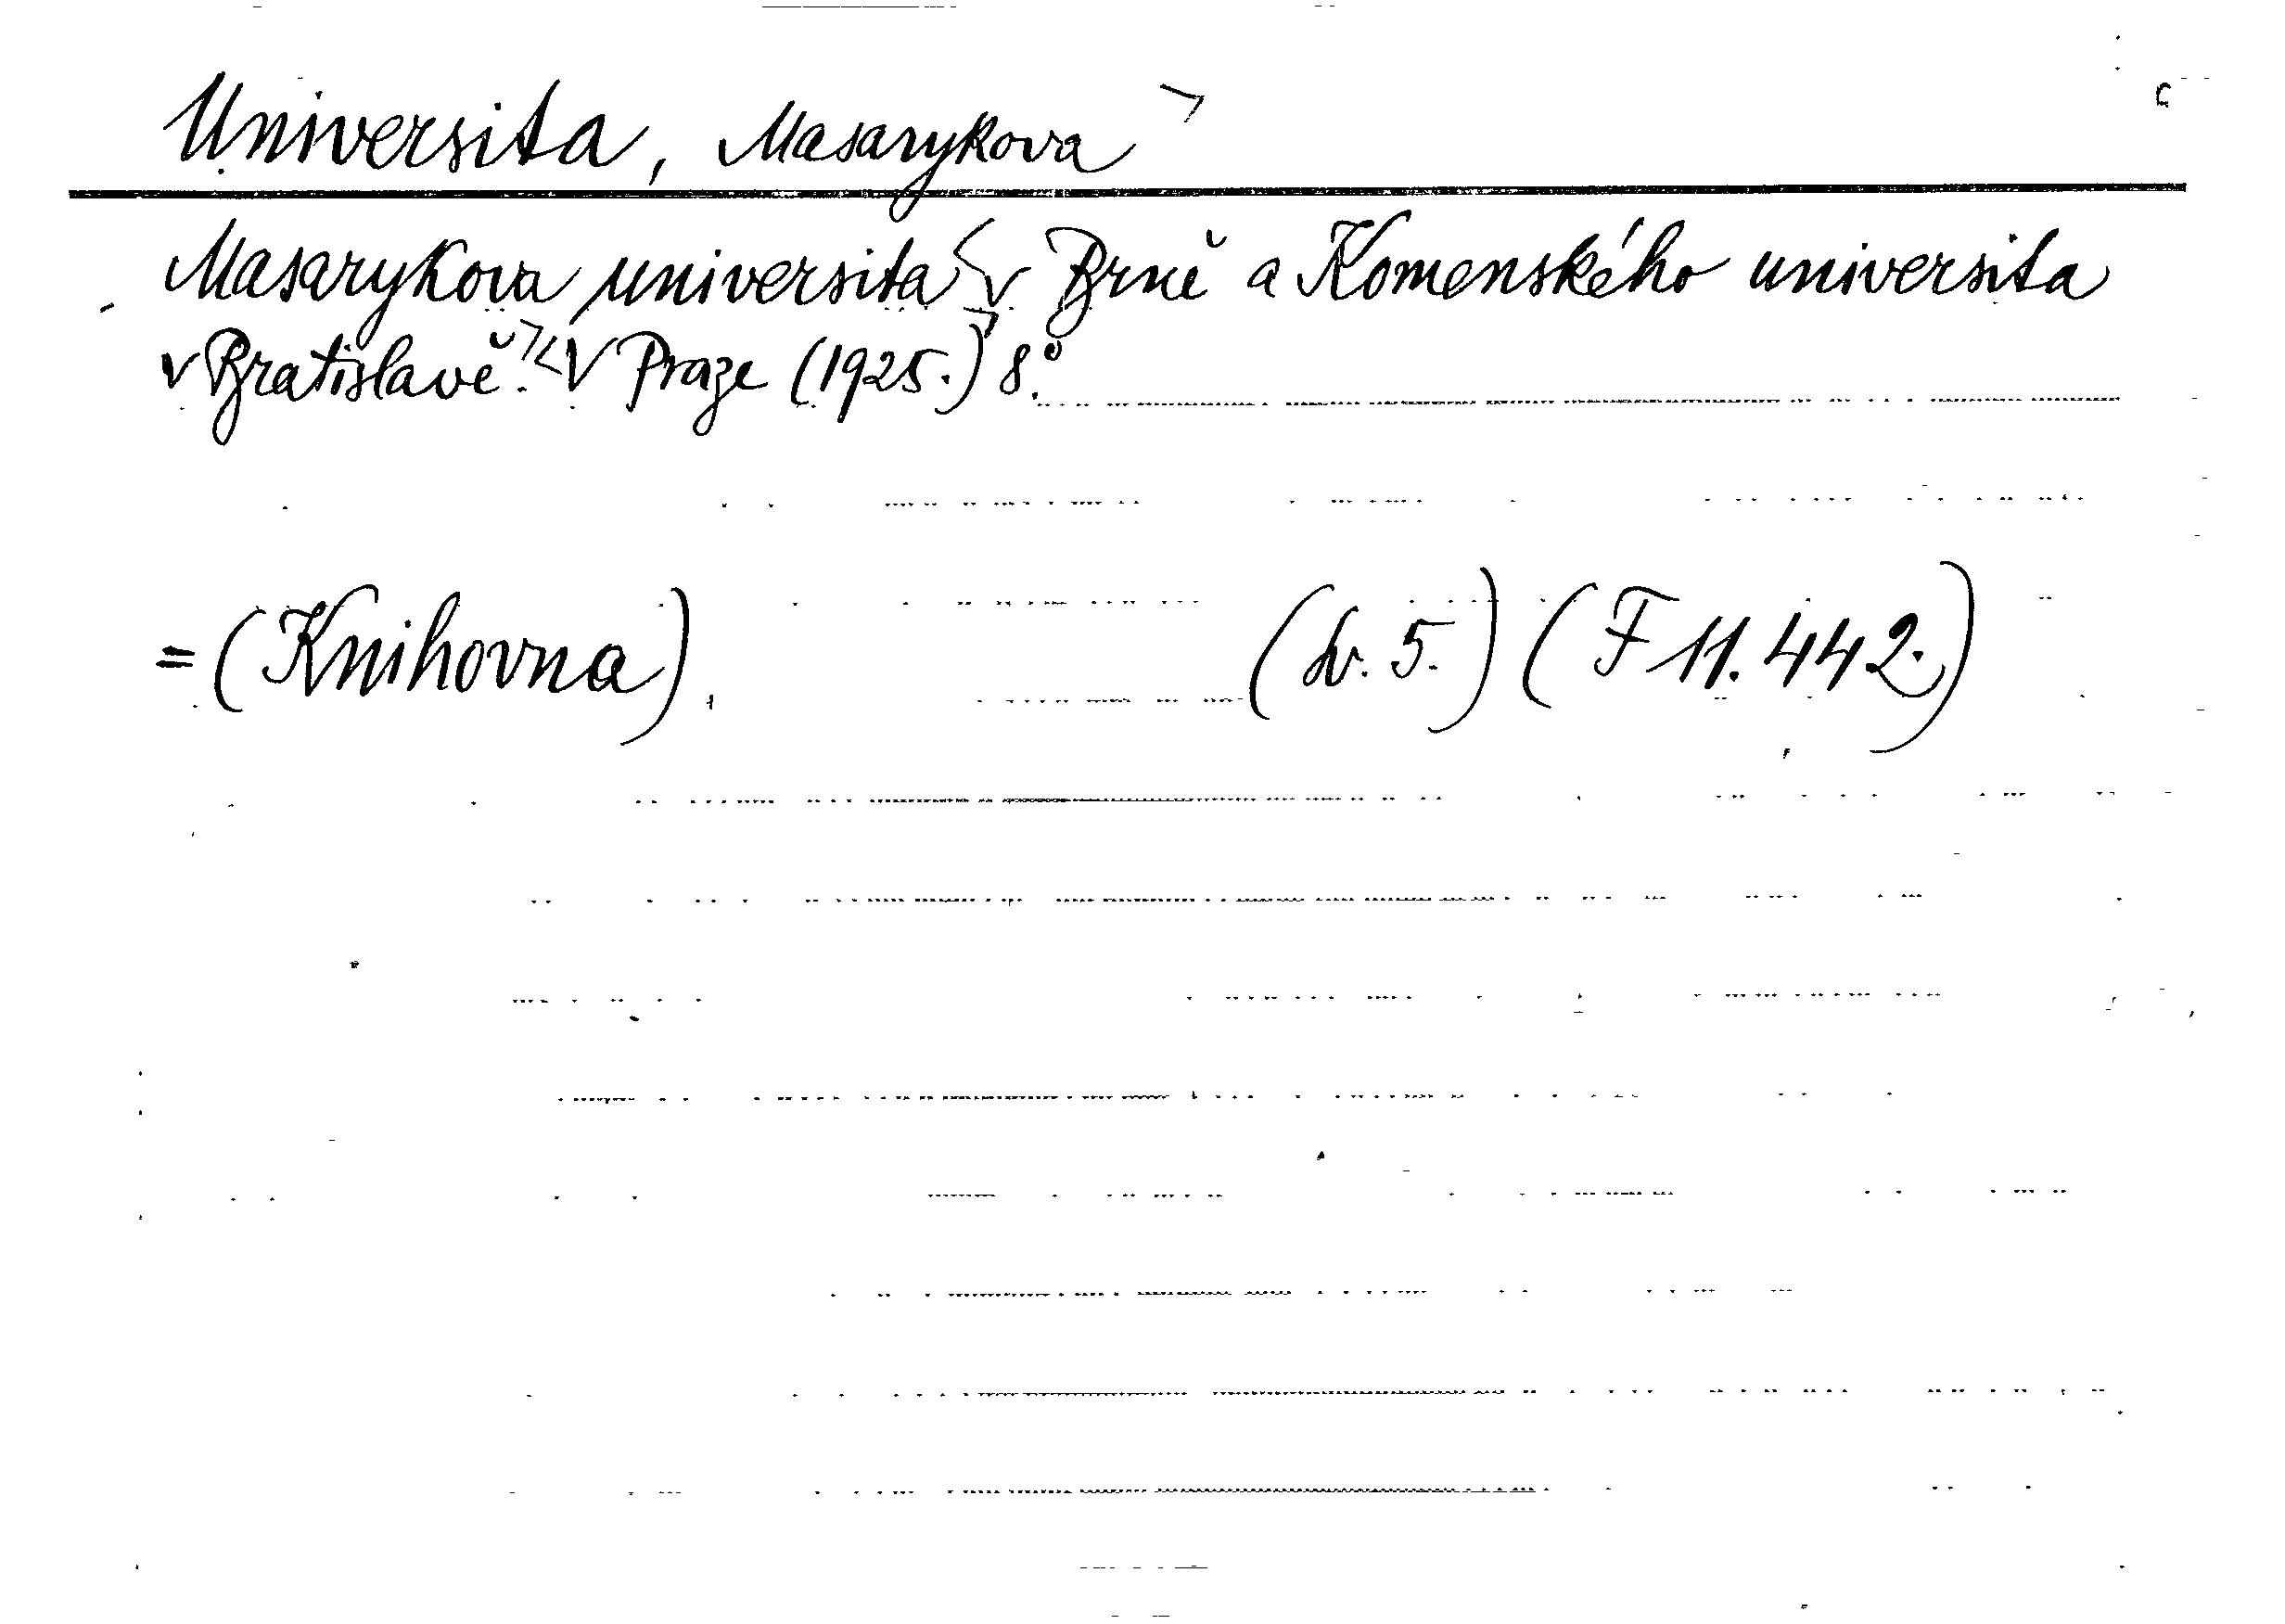 Universita, Masarykova >
Masarykova universita < v Brně a Komenského universita
v Bratislavě. > < V Praze (1925.) > 8.°
= (Knihovna). (sv. 5.) (F 11.442.)